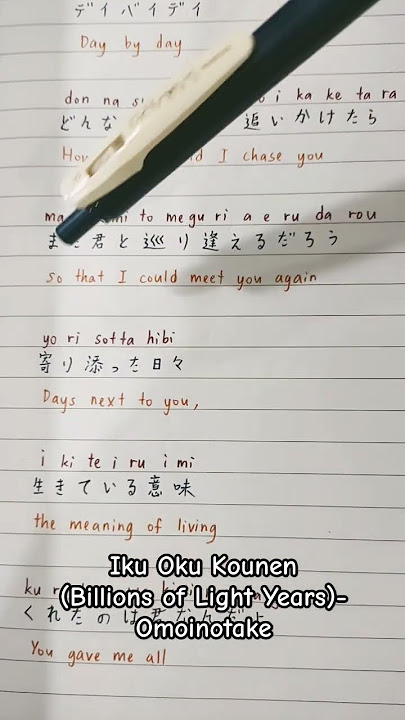 デイバイデイ
Day by day
don na i ka ke ta ra
どんな 追いかけたら
I chase you
to me gu ri a e ru da rou
君と巡り逢えるだろう
so that I could meet you again
yo ri sotta hibi
寄り添った日々
Days next to you,
i ki te i ru i mi
生きている意味
the meaning of living
Iku Oku Kounen
(Billions of Light Years)-
Omoinotake
ku
くれたのは君なんだよ
You gave me all